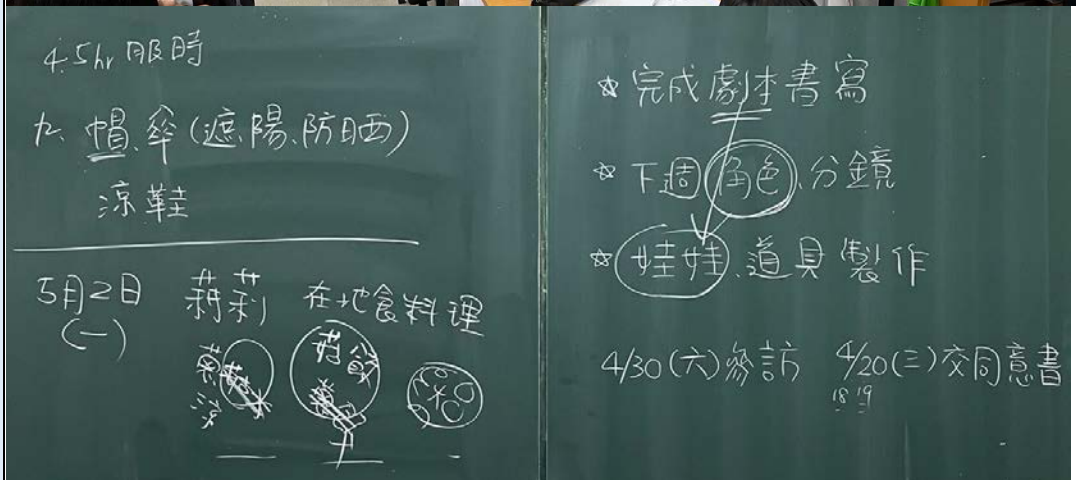 4.5hr 服時
帽、傘(遮陽、防晒)
涼鞋
5月2日
(一)
莉 在地食料理
☆ 完成劇本書寫
☆ 下週角色、分鏡
☆ 娃娃、道具製作
4/30(六)參訪 4/20(三)交同意書
18 19